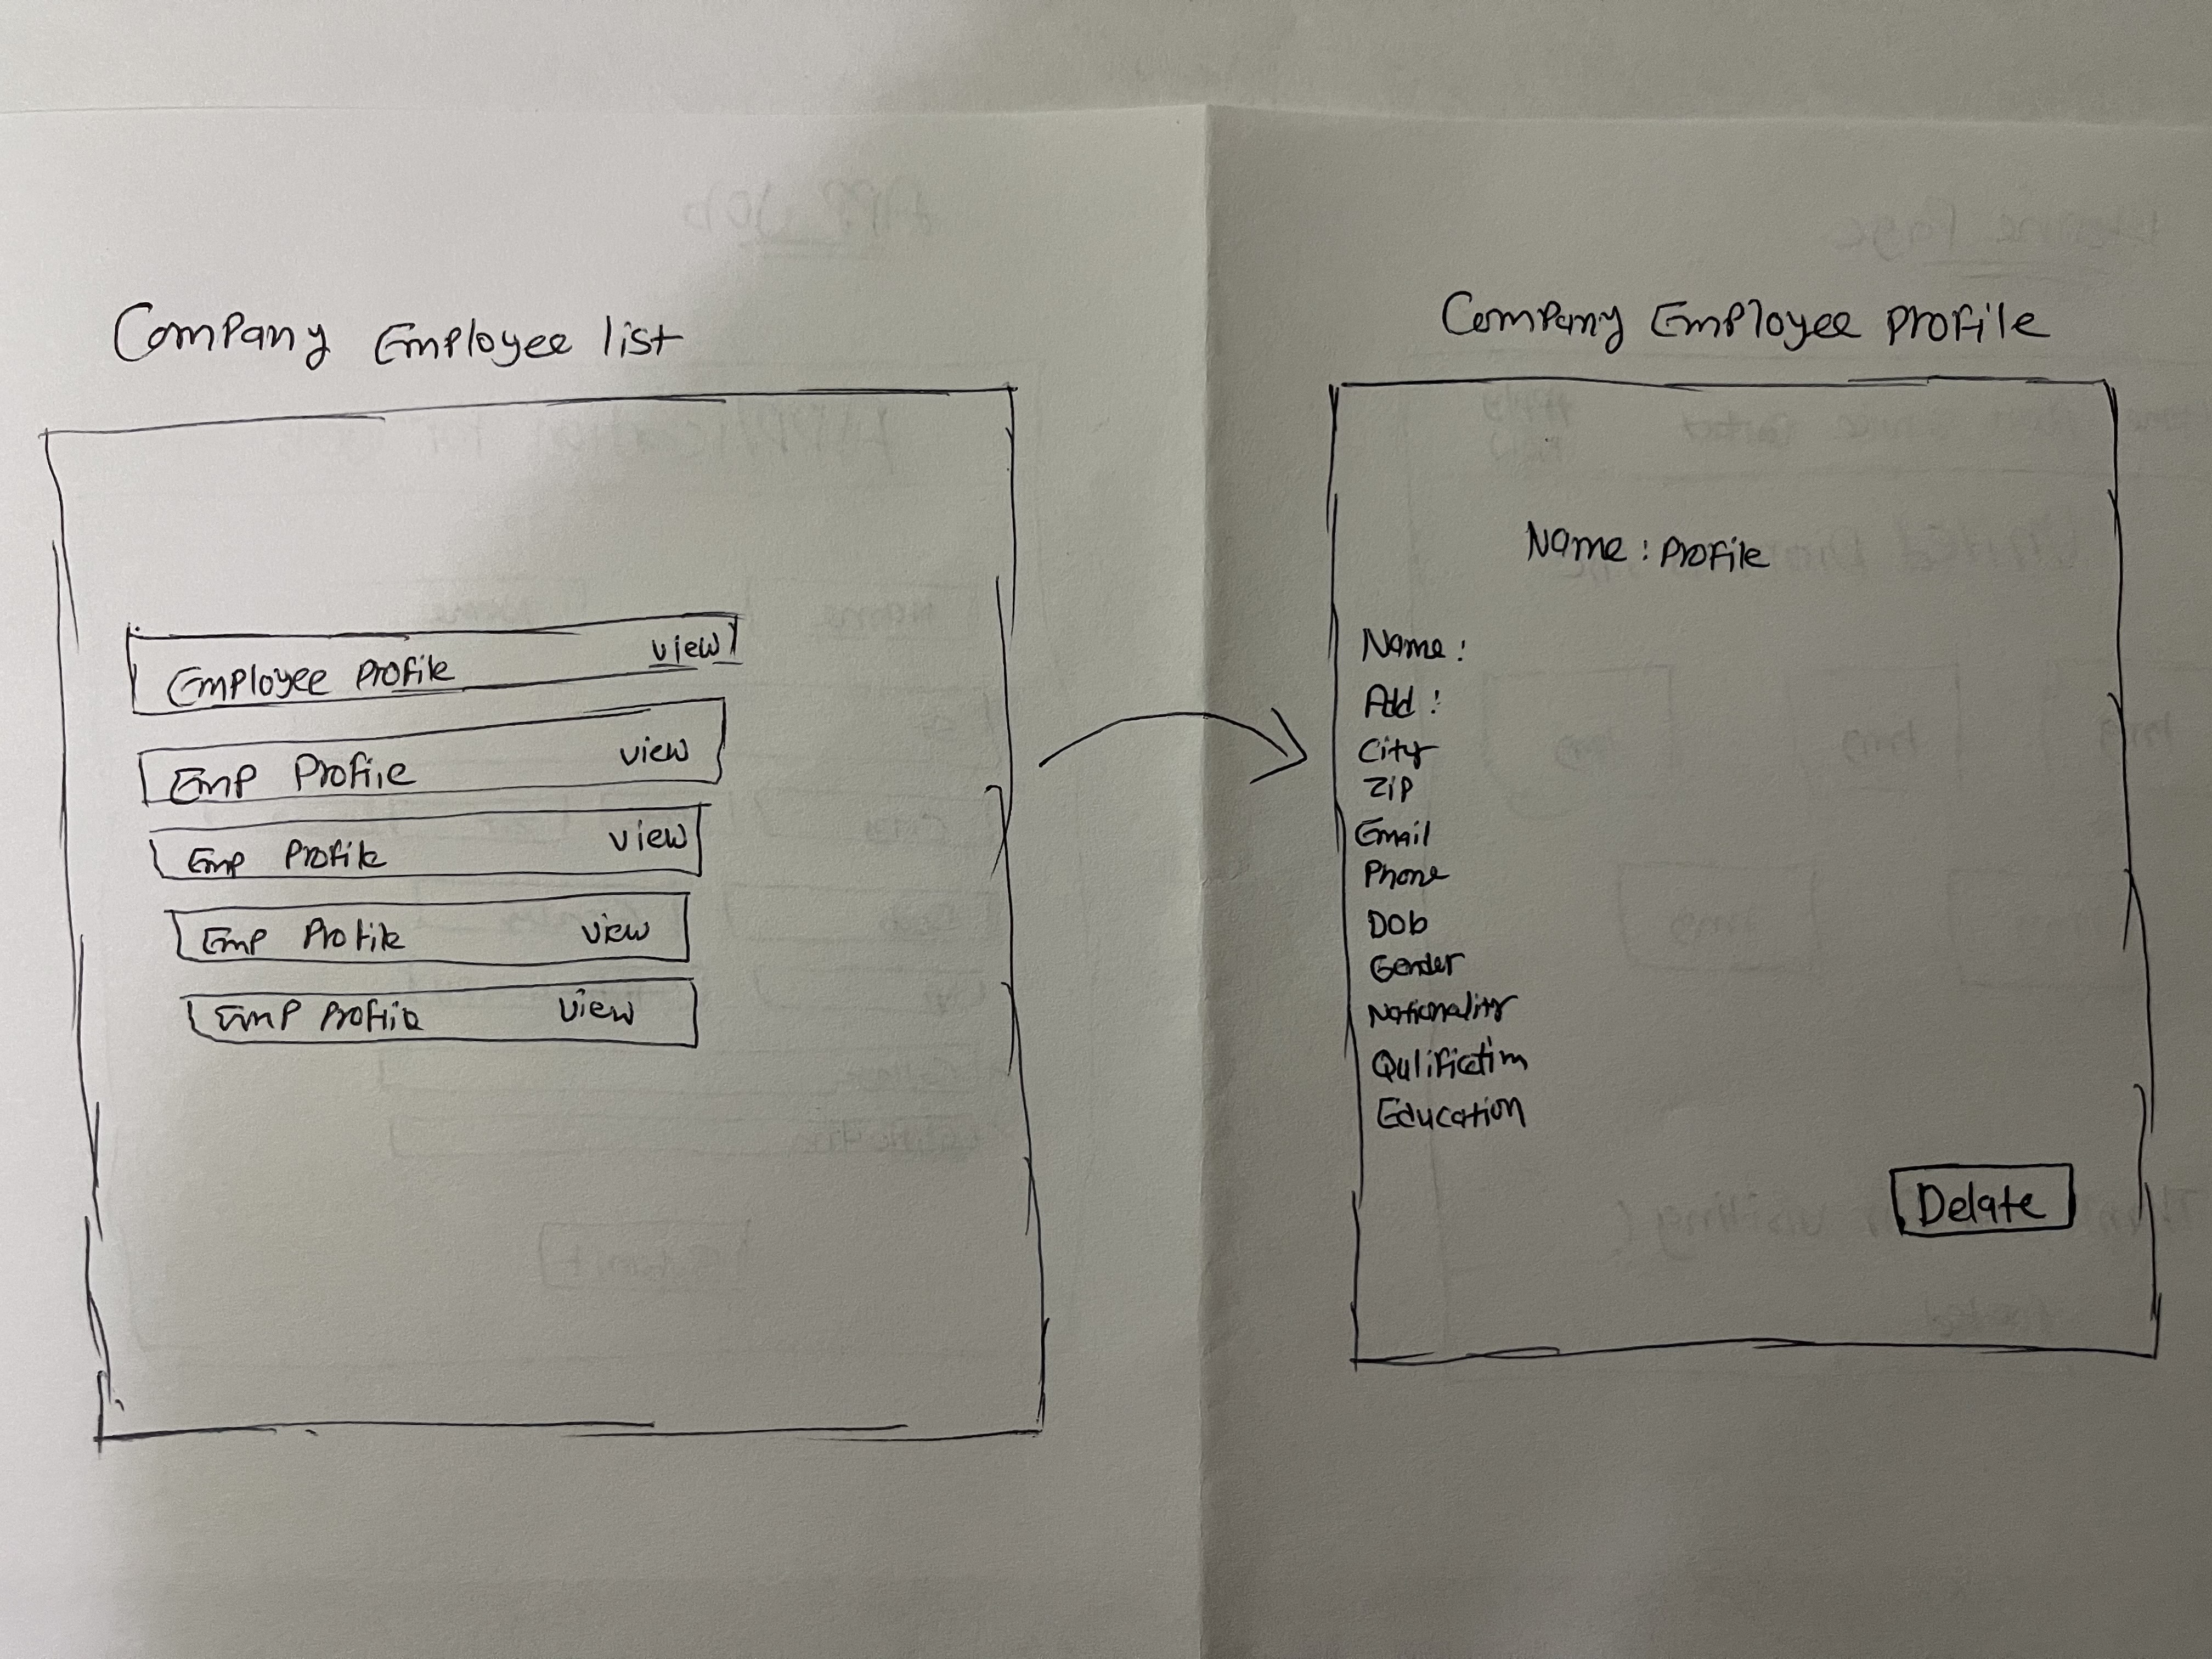 Company Employee list
Employee Profile view
Emp Profile view
Emp Profile view
Emp Profile view
Emp Profile view
Company Employee Profile
Name : Profile
Name :
Add :
City
Zip
Email
Phone
DOb
Gender
Nationality
Qulifictim
Education
Delate